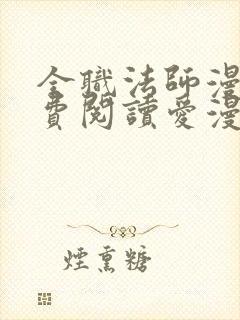 全職法師漫
費閱讀愛漫
煙熏糖